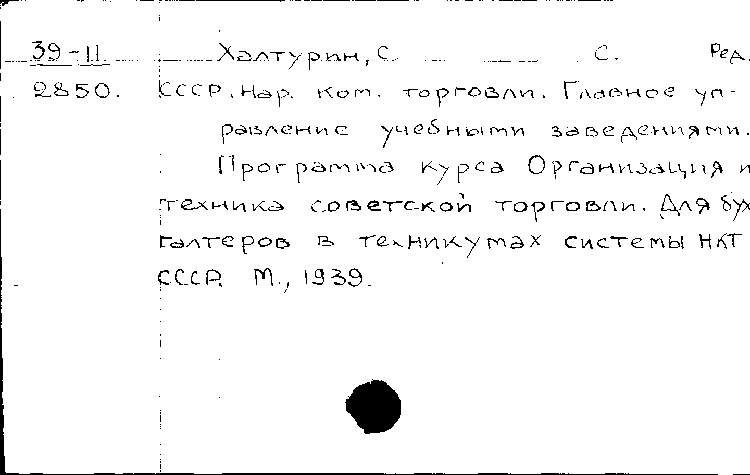 39-11 Халтурин, С. С. Ред.
2850. СССР. Нар. ком. торговли. Главное уп-
равление учебными заведениями.
Программа курса Организация и
техника советской торговли. Для бух
галтеров в техникумах системы НКТ
СССР. М., 1939.